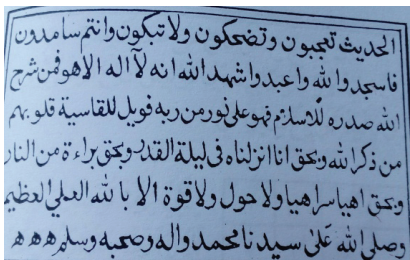 الحديث تعجبون وتضحكون ولا تبكون وانتم سامدون
فاسجدوا لله واعبدوا شهد الله انه لآ اله الا هو فمن شرح
الله صدره للاسلام فهو على نور من ربه فويل للقاسية قلوبهم
من ذكر الله وبحق انا انزلناه فى ليلة القدر وبحق براءة من النار
وبحق اهيا سراهيا ولا حول ولا قوة الا بالله العلي العظيم
وصلى الله على سيدنا محمد واله وصحبه وسلم ه ه ه